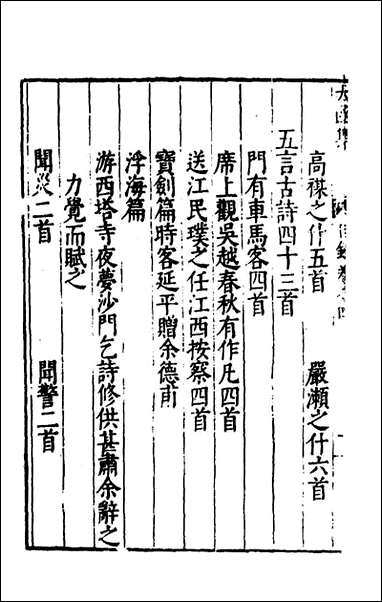 高禖之什五首　嚴瀨之什六首
五言古詩四十三首
門有車馬客四首
席上觀吳越春秋有作凡四首
送江民璞之任江西按察四首
寶劍篇時客延平贈余德甫
浮海篇
游西塔寺夜夢沙門乞詩修供甚肅余辭之
力覺而賦之
聞災二首　聞警二首